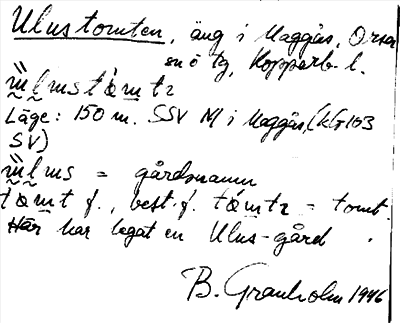 Ulustomten, äng i Maggås, Orsa
sn ö tg, Kopparb. l.
ɯ̈lmstómtz
Läge: 150 m. SSV M i Maggås, (KG103
SV)
ɯ̈lms = gårdsnamn
tómt f., best. f. tómtz = tomt.
Här har legat en Ulus-gård.
B. Granholm 1946